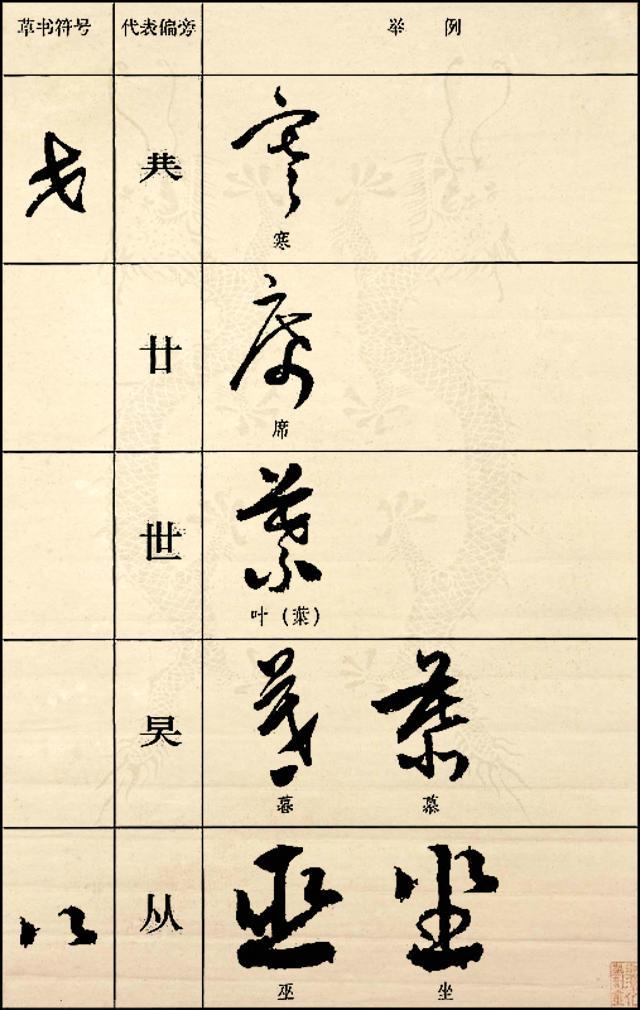 草书符号 代表偏旁 举例
共
寒
廿
席
世
叶（葉）
旲
暮 慕
从
巫 坐